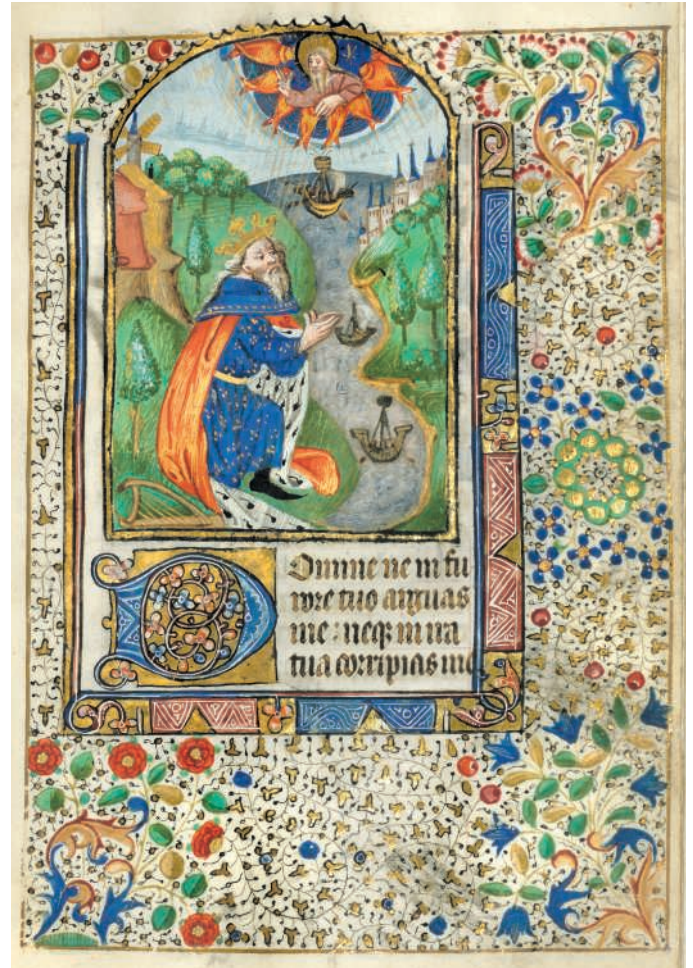 Domine ne in fu
rore tuo arguas
me: neq̄ in ira
tua corripias me